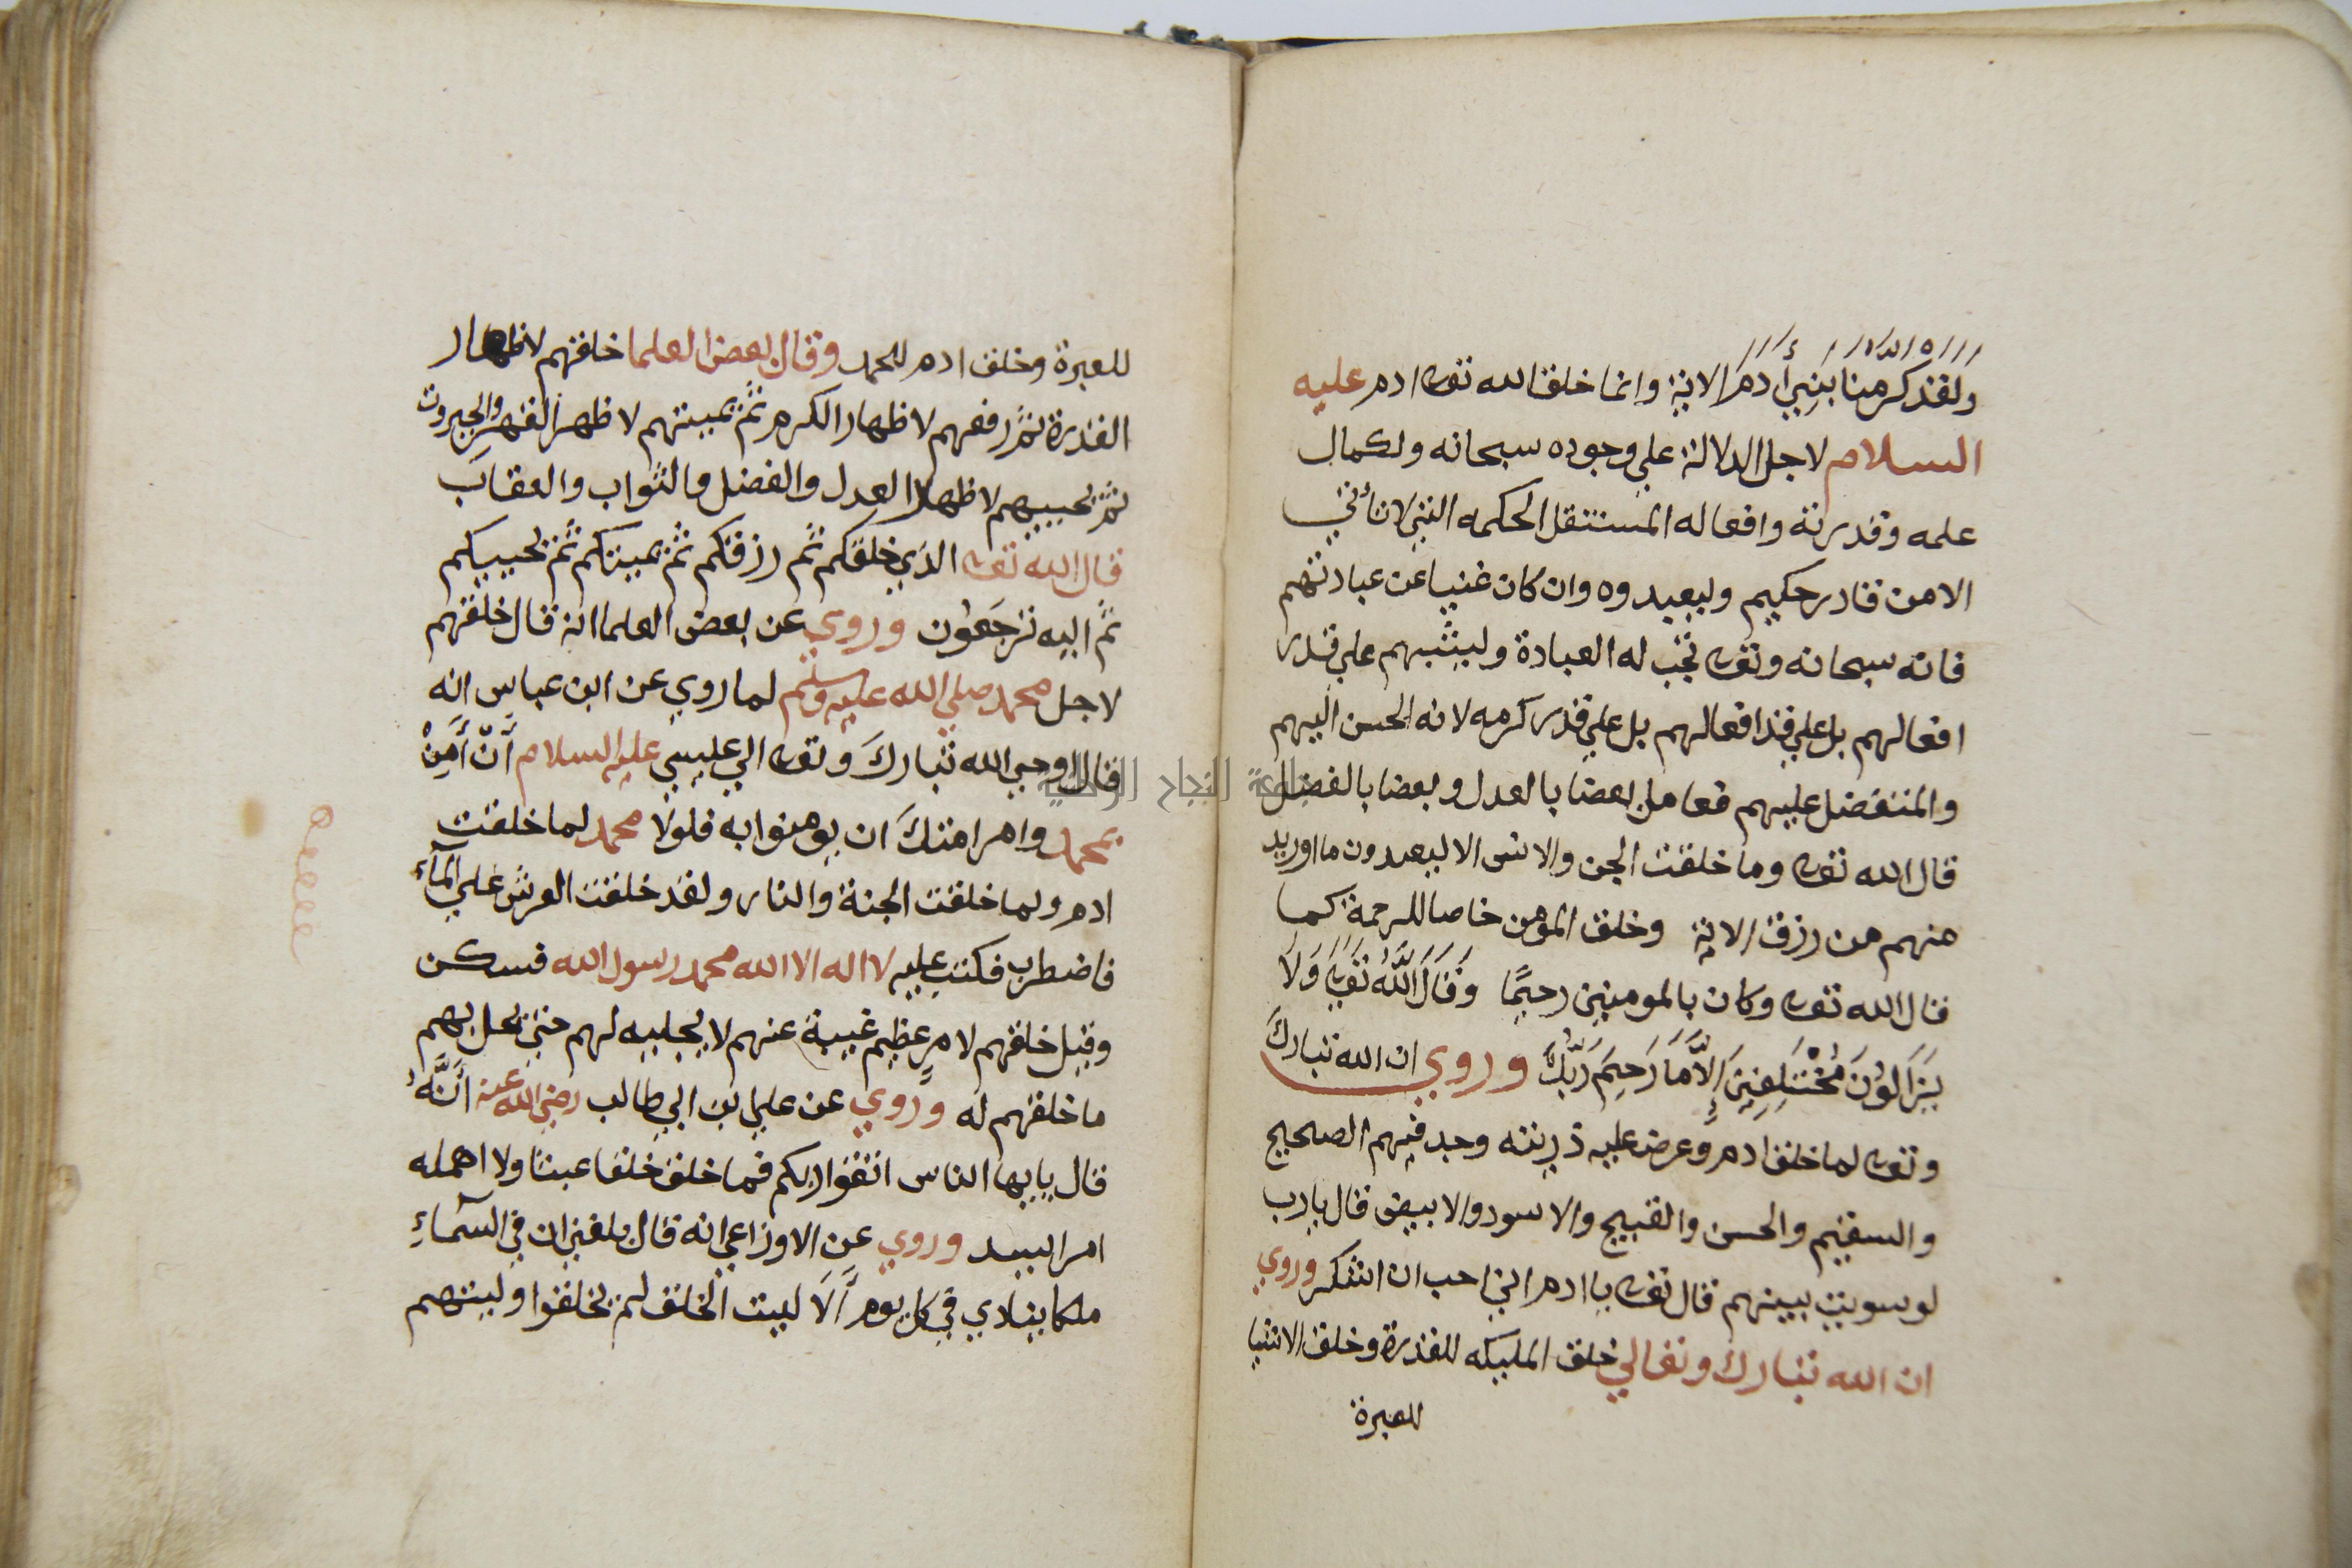 ولقد كرمنا بني أدم الاية وانما خلق الله تعالى ادم عليه
السلام لاجل الدلالة علي وجوده سبحانه ولكمال
علمه وقدرته وافعاله المستقل الحكمه التي لا تأتي
الا من قادر حكيم وليعبدوه وان كان غنيا عن عبادتهم
فانه سبحانه وتعالى تجب له العبادة وليثيبهم علي قدر
افعالهم بل علي قد افعالهم بل علي قدر كرمه لانه الحسن اليهم
والمتفضل عليهم فعامل بعضا بالعدل وبعضا بالفضل
قال الله تعالى وما خلقت الجن والانس الا ليعبدون ما اوريد
منهم من رزق الاية وخلق المؤمن خاصا للرحمة كما
قال الله تعالى وكان بالمومنين رحيمًا وَقَالَ اللَّهُ تَعَالى وَلَا
يَزَالُونَ مُخْتَلِفِينَ إِلَّا مَا رَحِمَ رَبُّكَ وروي ان الله تبارك
وتعالى لما خلق ادم وعرض عليه ذريته وجد فيهم الصحيح
والسقيم والحسن والقبيح والاسود والابيض قال يارب
لو سويت بينهم قال تعالى يا ادم اني احب ان اشكر وروي
ان الله تبارك وتعالي خلق المليكه للقدرة وخلق الاشيا
للعبرة
للعبرة وخلق ادم للحمد وقال بعض العلما خلقهم لاظهار
القدرة ثم رفعهم لاظهار الكرم ثم يميتهم لاظهر القهر والجبروت
ثم يحييهم لاظهار العدل والفضل والثواب والعقاب
قال الله تعالى الذي خلقكم ثم رزقكم ثم يميتكم ثم يحييكم
ثم اليه ترجَعُون وروي عن بعض العلما انه قال خلقهم
لاجل محمد صلي الله عليه وسلم لما روي عن ابن عباس انه
قال اوحي الله تبارك وتعالى الي عيسي عليه السلام أَنْ أَمِنْ
بمحمد وامر امتك ان يومنوا به فلولا محمد لما خلقت
ادم ولما خلقت الجنة والنار ولقد خلقت العرش علي الماء
فاضطرب فكتبت عليه لا اله الا الله محمد رسول الله فسكن
وقيل خلقهم لامرٍ عظيم غيبة عنهم لا يجليه لهم حتى يحل بهم
ما خلقهم له وروي عن علي بن ابي طالب رضي الله عنه أَنَّهُ
قال يايها الناس اتقوا ربكم فما خلق خلقا عبثا ولا اهمله
امرا وروي عن الاوزاعي انه قال بلغني ان في السماء
ملكا ينادي في كل يوم أَلَا ليت الخلق لم يخلقوا وليتهم
جامعة النجاح الوطنية